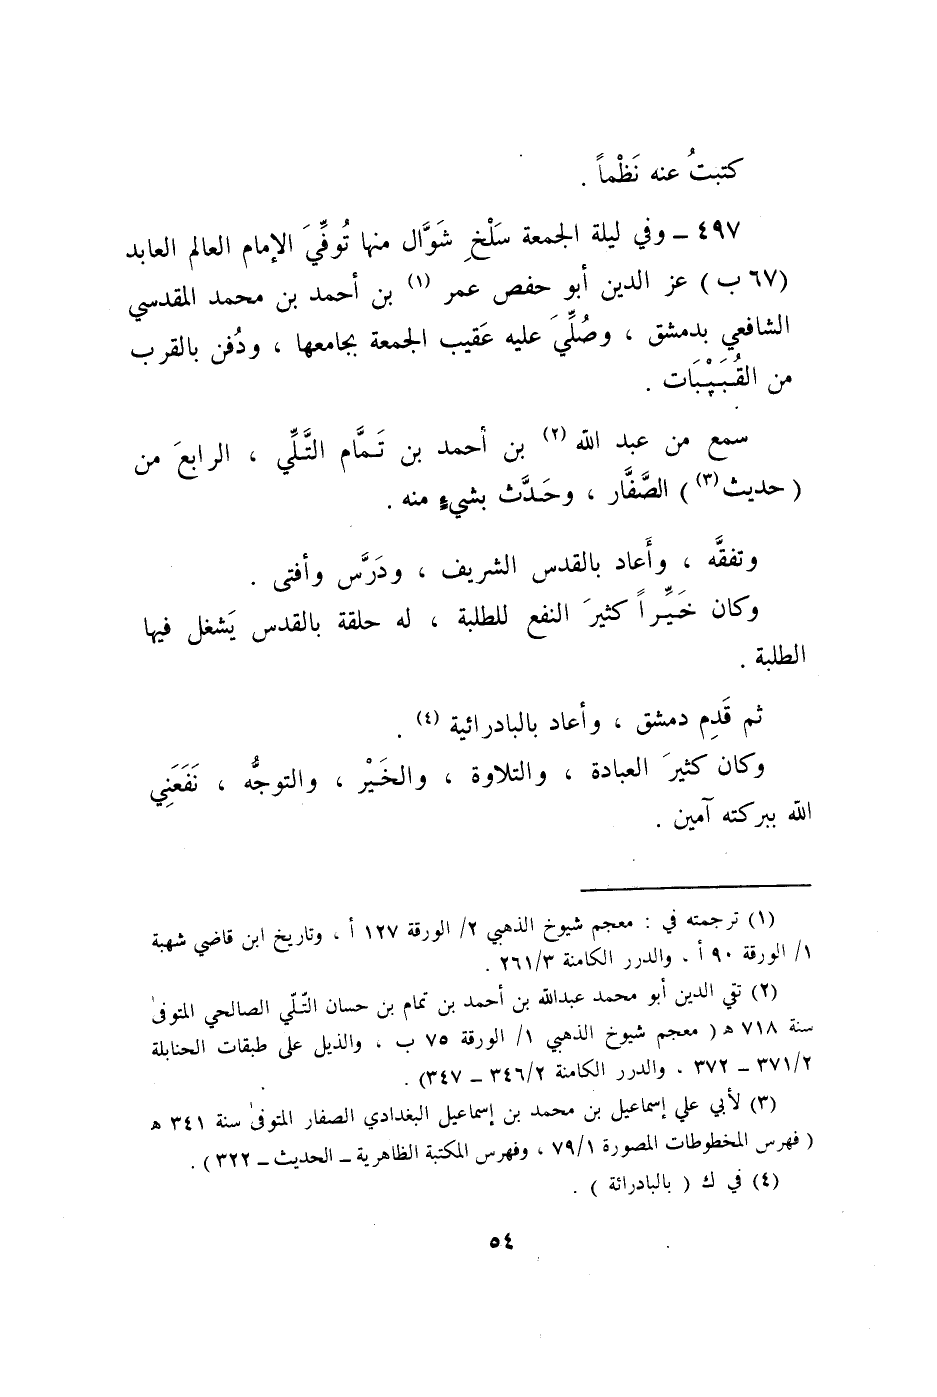 كتبتُ عنه نَظْماً .
٤٩٧ ـ وفي ليلة الجمعة سَلْخِ شَوَّال منها تُوفِّيَ الإمام العالم العابد
(٦٧ ب) عز الدين أبو حفص عمر (١) بن أحمد بن محمد المقدسي
الشافعي بدمشق ، وصُلِّيَ عليه عَقيب الجمعة بجامعها ، ودُفن بالقرب
من القُبَيْبَات .
سمع من عبد الله (٢) بن أحمد بن تَمَّام التَّلِّي ، الرابعَ من
( حديث (٣) ) الصَّفَّار ، وحَدَّث بشيءٍ منه .
وتفقَّه ، وأَعاد بالقدس الشريف ، ودَرَّس وأفتى .
وكان خَيِّراً كثيرَ النفع للطلبة ، له حلقة بالقدس يَشغل فيها
الطلبة .
ثم قَدِم دمشق ، وأعاد بالبادرائية (٤) .
وكان كثيرَ العبادة ، والتلاوة ، والخَيْر ، والتوجُّه ، نَفَعَنِي
الله ببركته آمين .
(١) ترجمته في : معجم شيوخ الذهبي ٢/ الورقة ١٢٧ أ ، وتاريخ ابن قاضي شهبة
١/ الورقة ٩٠ أ ، والدرر الكامنة ٢٦١/٣ .
(٢) تقي الدين أبو محمد عبدالله بن أحمد بن تمام بن حسان التّلّي الصالحي المتوفىٰ
سنة ٧١٨ هـ ( معجم شيوخ الذهبي ١/ الورقة ٧٥ ب ، والذيل على طبقات الحنابلة
٣٧١/٢ ـ ٣٧٢ ، والدرر الكامنة ٣٤٦/٢ ـ ٣٤٧) .
(٣) لأبي علي إسماعيل بن محمد بن إسماعيل البغدادي الصفار المتوفىٰ سنة ٣٤١ هـ
( فهرس المخطوطات المصورة ٧٩/١ ، وفهرس المكتبة الظاهرية ـ الحديث ـ ٣٢٢ ) .
(٤) في ك ( بالبادرائة ) .
٥٤